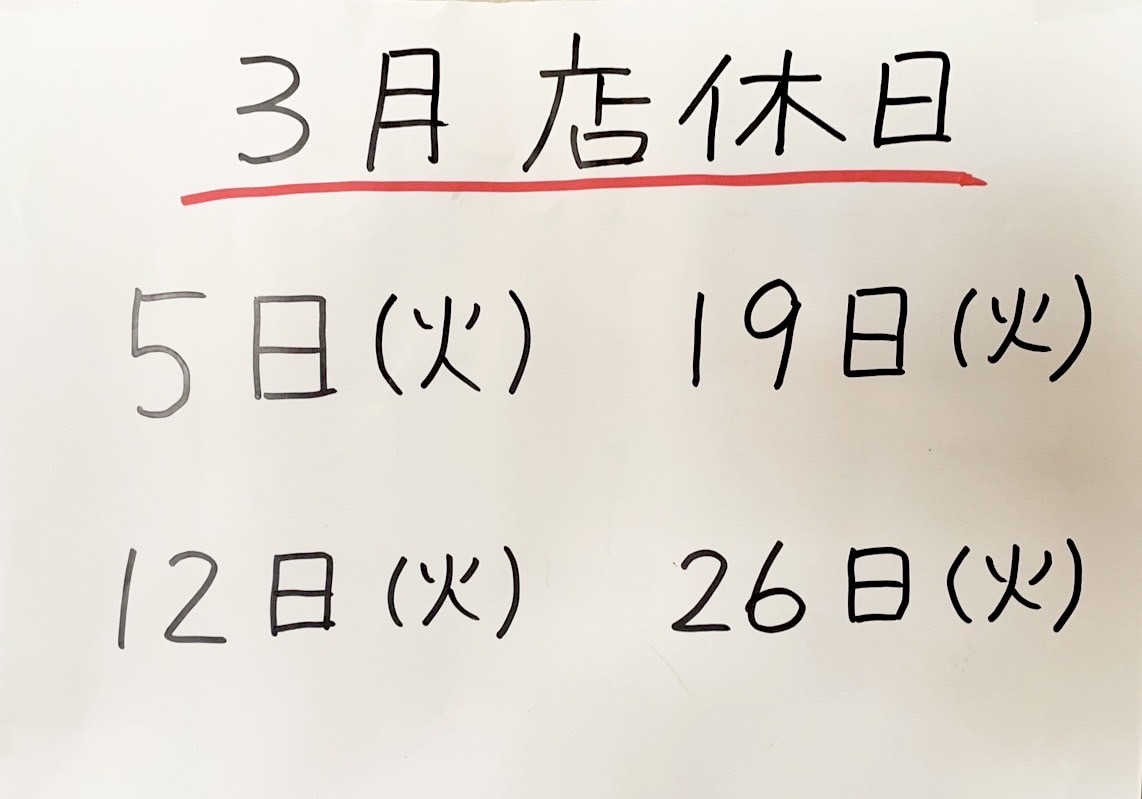 3月 店休日
5日(火) 19日(火)
12日(火) 26日(火)